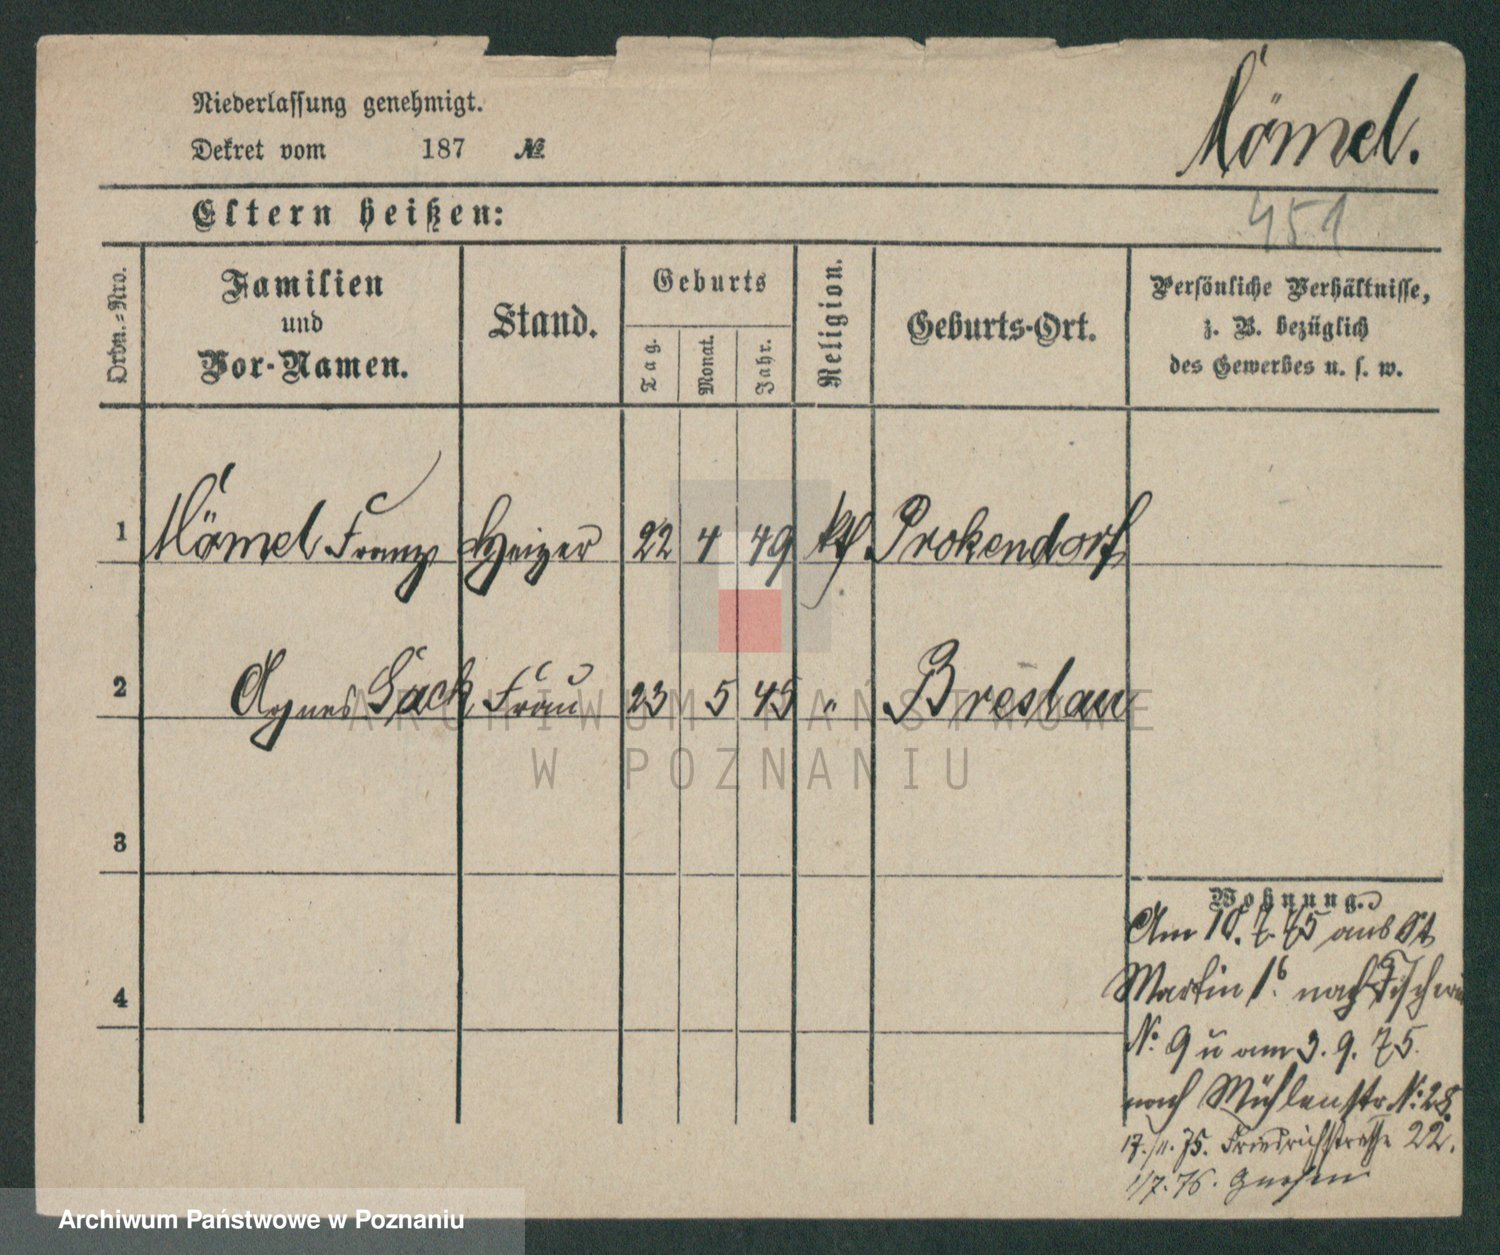 Niederlassung genehmigt.
Dekret vom 187 №
Mömel.
451
Eltern heißen:
Ordn.-Nro.
Familien
und
Vor-Namen.
Stand.
Geburts
Tag.
Monat.
Jahr.
Religion.
Geburts-Ort.
Persönliche Verhältnisse,
z. B. bezüglich
des Gewerbes u. s. w.
1 Mömel Franz Heizer 22 4 49 kth. Prokendorf
2 Agnes Sack Frau 23 5 45 " Breslau
3
4
Wohnung.
Am 10. 7. 75 aus St
Martin 1b. nach Fischerei
No. 9 u am 3. 9. 75.
nach Mühlenstr No. 28.
17./11. 75. Friedrichstrasse 22.
1/7. 76. Gnesen
ARCHIWUM PAŃSTWOWE
W POZNANIU
Archiwum Państwowe w Poznaniu